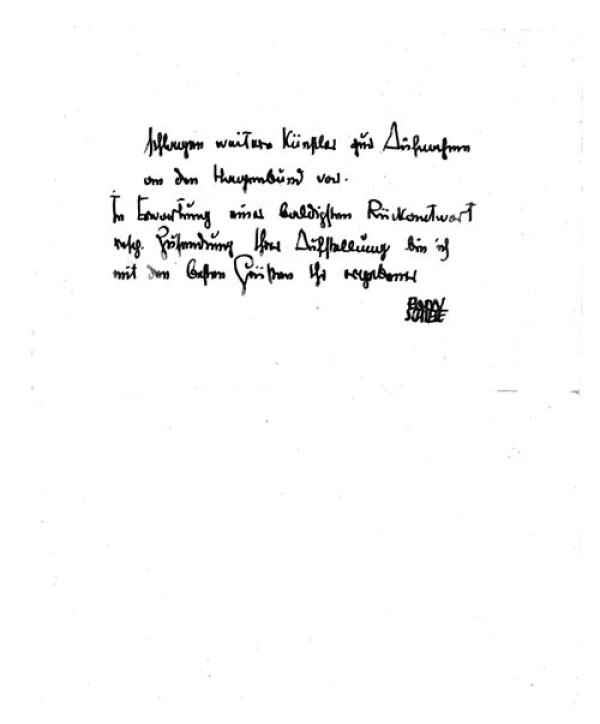 schlagen weitere Künstler zur Aufnahme
an den Hagenbund vor.
In Erwartung einer baldigsten Rückantwort
resp. Zusendung Ihrer Aufstellung bin ich
mit den besten Grüßen Ihr ergebener